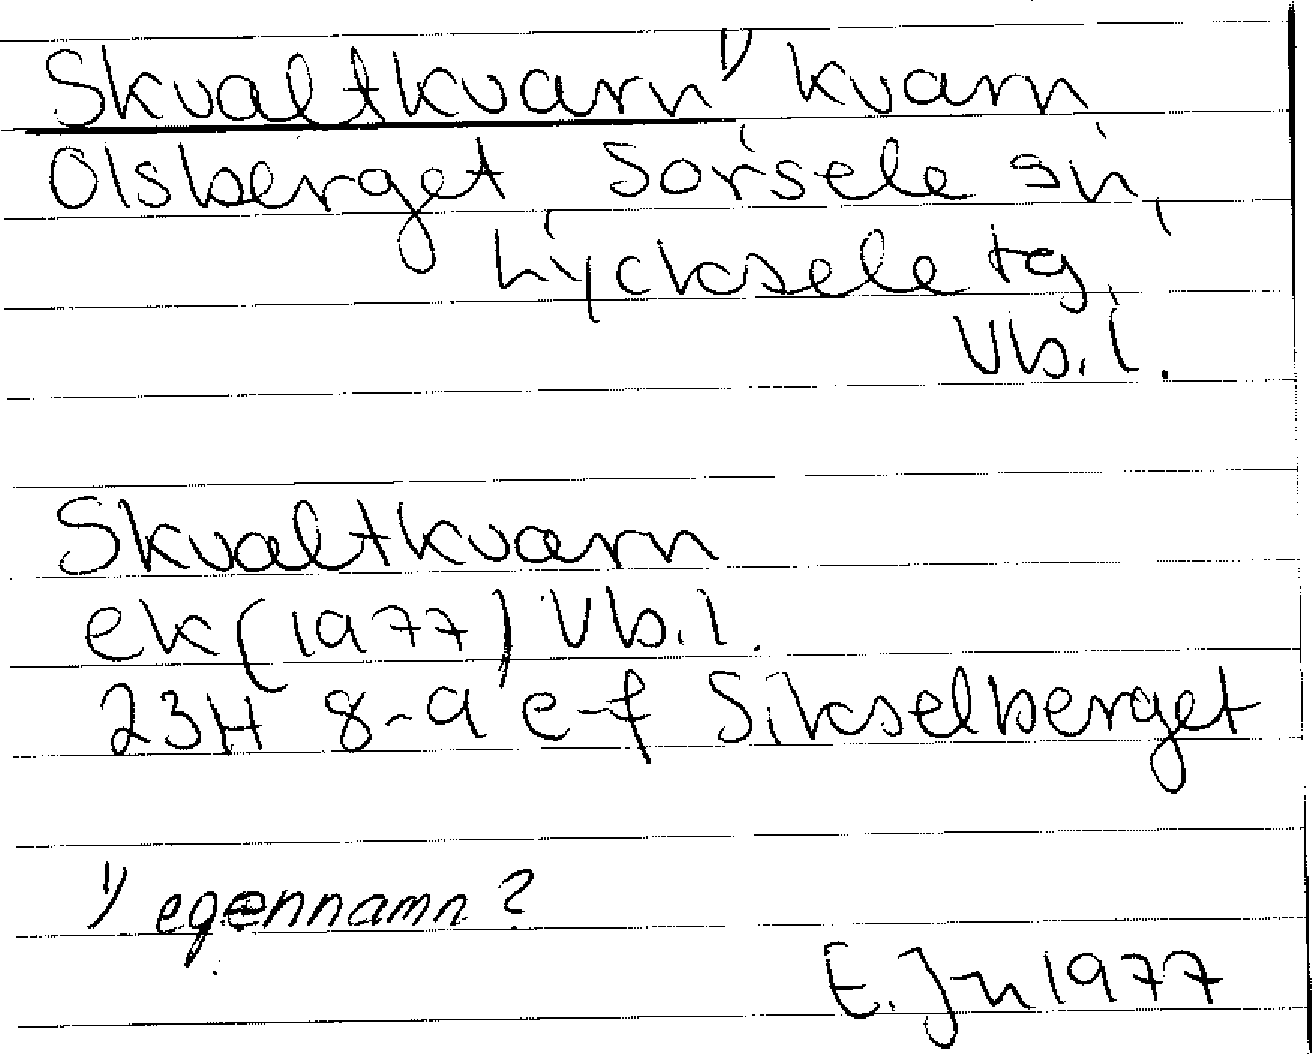 Skvaltkvarn 1) kvarn
Olsberget Sorsele sn,
Lycksele tg,
Vb. l.
Skvaltkvarn
ek (1977) Vb. l.
23H 8-9 e-f Sikselberget
1) egennamn?
E. Jn 1977